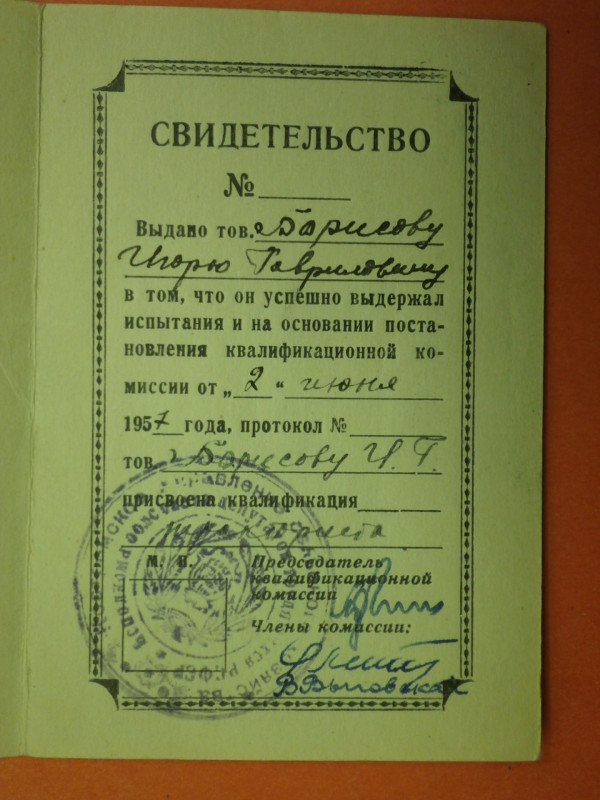 СВИДЕТЕЛЬСТВО
№
Выдано тов. Борисову
Игорю Гавриловичу
в том, что он успешно выдержал
испытания и на основании поста-
новления квалификационной ко-
миссии от „ 2 “ июня
1957 года, протокол №
тов. Борисову И. Г.
присвоена квалификация
тракториста
М. П.
Председатель
квалификационной
комиссии
Члены комиссии: